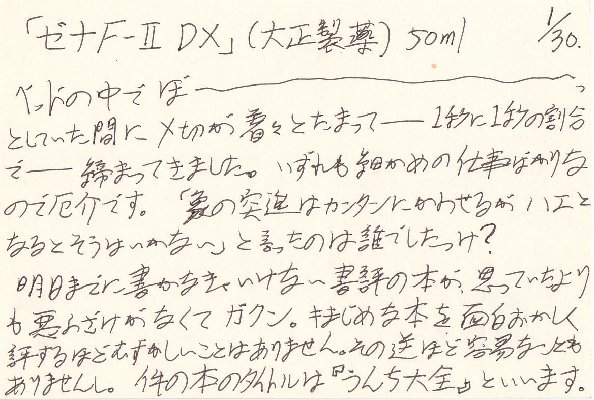 「ゼナF-Ⅱ DX」(大正製薬) 50ml 1/30.
ベッドの中でぼ――――――――っ
としていた間に〆切が着々とたまって――1秒に1秒の割合
で――締まってきました。いずれも細かめの仕事ばかりな
ので厄介です。「象の突進はカンタンにかわせるが ハエと
なるとそうはいかない」と言ったのは誰でしたっけ?
明日までに書かなきゃいけない書評の本が、思っていたより
も悪ふざけがなくてガクン。まじめな本を面白おかしく
評するほどむずかしいことはありません。その逆ほど容易なことも
ありませんし。件の本のタイトルは『うんち大全』といいます。